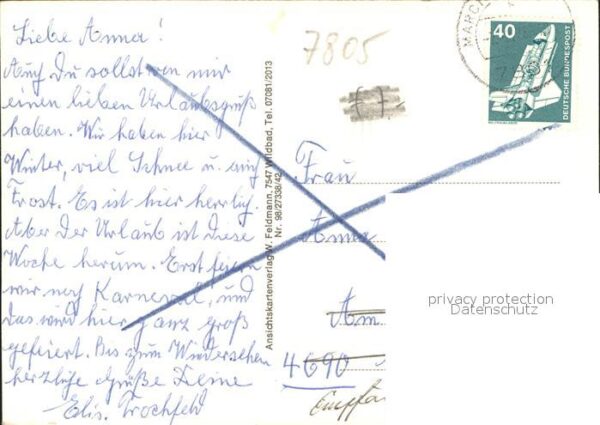 Liebe Anna!
Auch Du sollst von mir
einen lieben Urlaubsgruß
haben. Wir haben hier
Winter, viel Schnee u. auch
Frost. Es ist hier herrlich.
Aber der Urlaub ist diese
Woche herum. Erst feiern
wir noch Karneval, und
das wird hier ganz groß
gefeiert. Bis zum Wiedersehen
herzliche Grüße Deine
Elis. Trochfeld
Ansichtskartenverlag W. Feldmann, 7547 Wildbad, Tel. 07081/2013
Nr. 98/27338/42
7805
MARCL
40
DEUTSCHE BUNDESPOST
Frau
Anna
Am
4690
privacy protection
Datenschutz